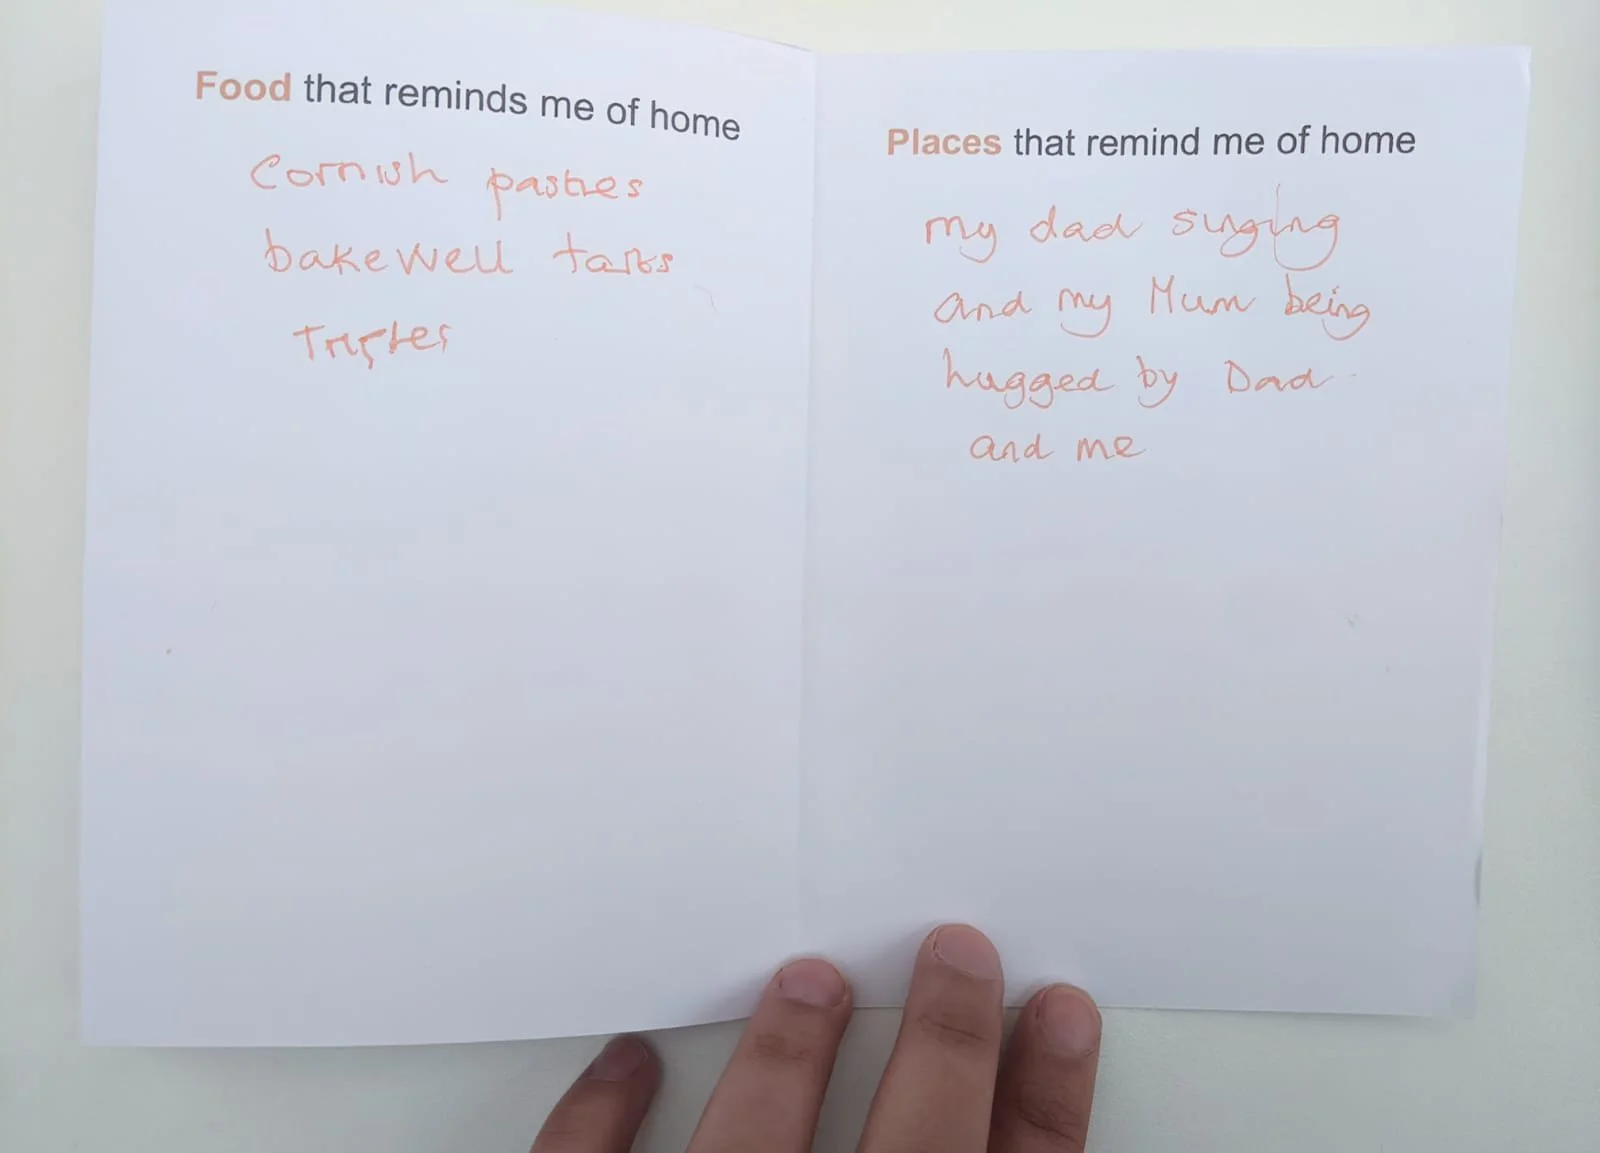 Food that reminds me of home
Cornish pasties
bakewell tarts
Trifles
Places that remind me of home
my dad singing
and my Mum being
hugged by Dad
and me